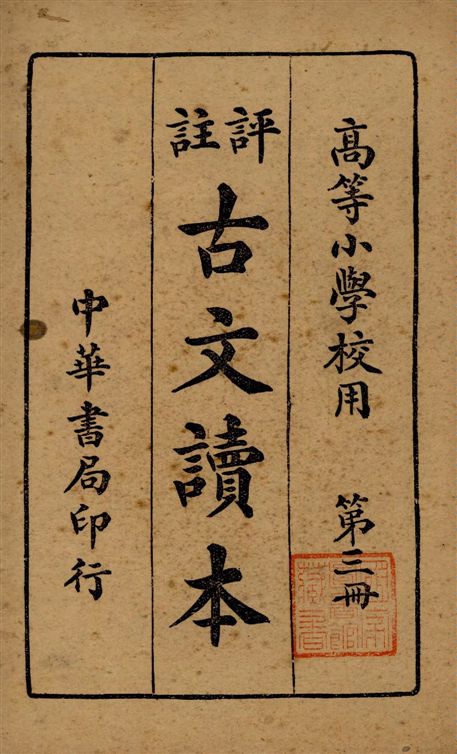 高等小學校用　第三冊
評註
古文讀本
中華書局印行